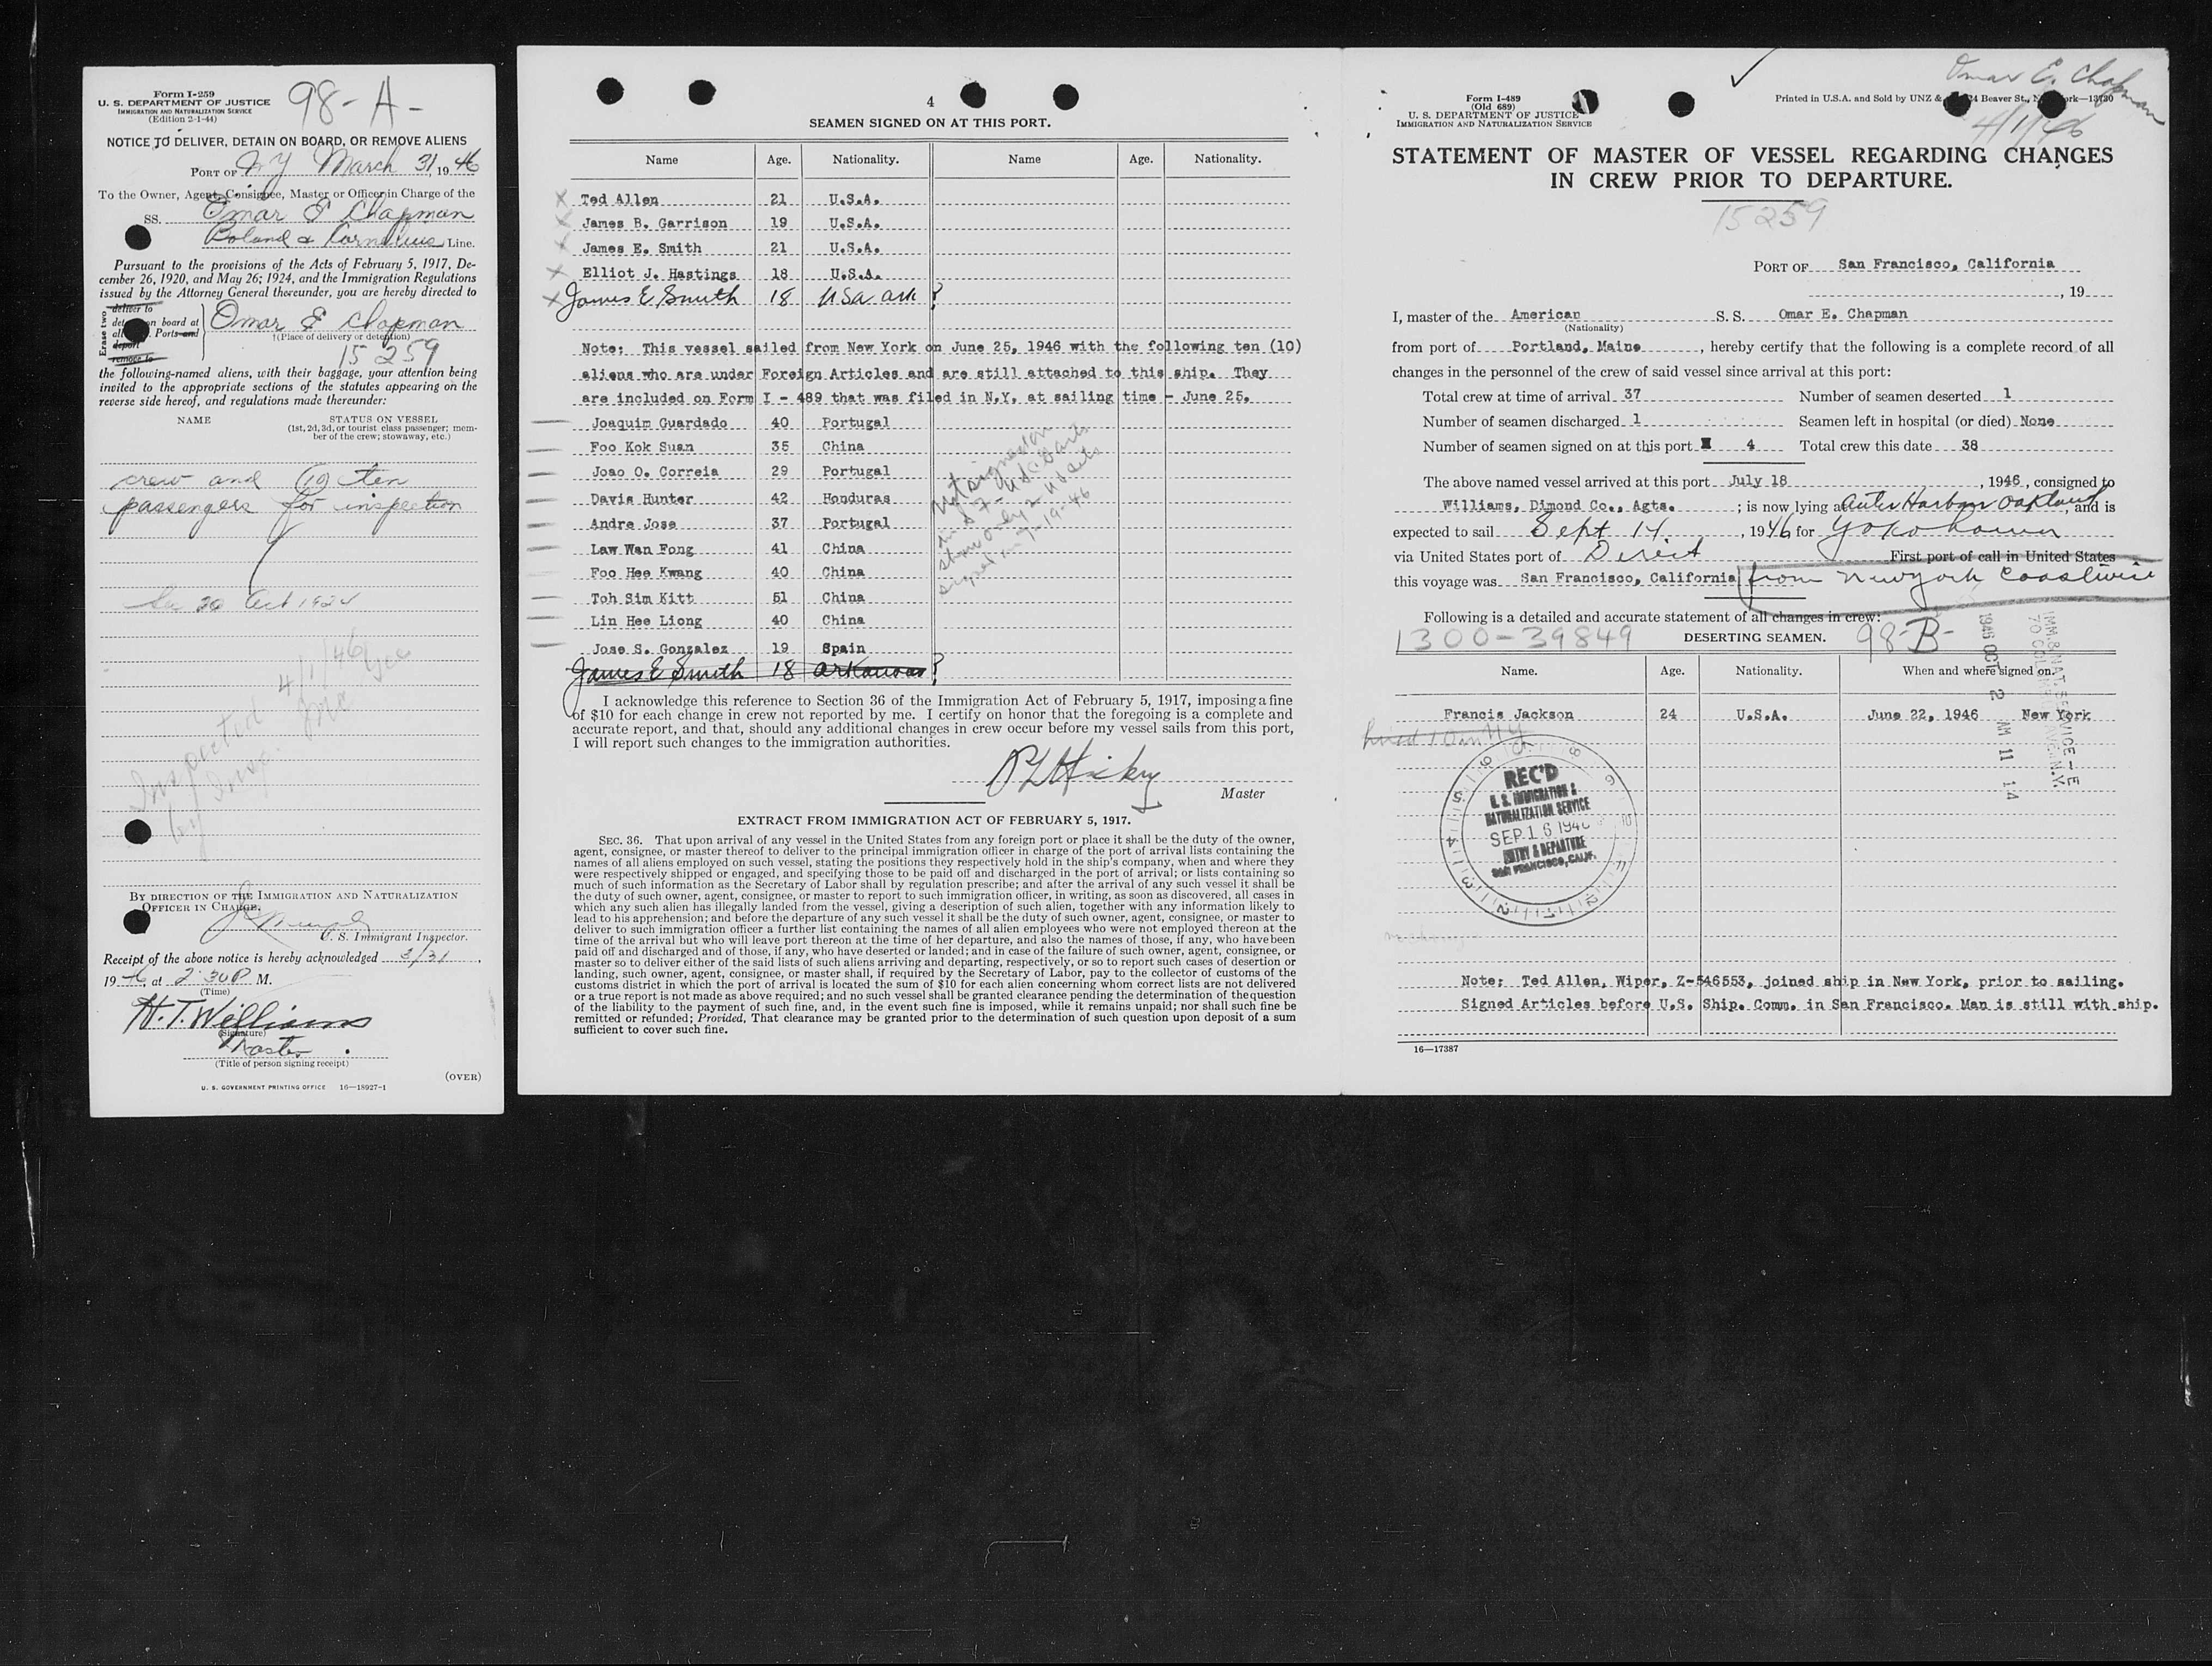 Form I-259
98-A-
U. S. DEPARTMENT OF JUSTICE
IMMIGRATION AND NATURALIZATION SERVICE
(Edition 2-1-44)
NOTICE TO DELIVER, DETAIN ON BOARD, OR REMOVE ALIENS
PORT OF N Y March 31, 1946
To the Owner, Agent, Consignee, Master or Officer in Charge of the
SS. Omar E Chapman
Boland & Cornelius Line.
Pursuant to the provisions of the Acts of February 5, 1917, De-
cember 26, 1920, and May 26, 1924, and the Immigration Regulations
issued by the Attorney General thereunder, you are hereby directed to
Erase two
deliver to
on board at
Ports and
deport
remove to
Omar E Chapman
†(Place of delivery or detention)
15259
the following-named aliens, with their baggage, your attention being
invited to the appropriate sections of the statutes appearing on the
reverse side hereof, and regulations made thereunder:
NAME STATUS ON VESSEL
(1st, 2d, 3d, or tourist class passenger; mem-
ber of the crew; stowaway, etc.)
crew and (10) ten
passengers for inspection
Inspected 4/1/46
by Insp.
BY DIRECTION OF THE IMMIGRATION AND NATURALIZATION
OFFICER IN CHARGE.
U. S. Immigrant Inspector.
Receipt of the above notice is hereby acknowledged 3/31,
1946, at 2:30 P M.
(Time)
H. T. Williams
(Signature)
Master
(Title of person signing receipt)
(OVER)
U. S. GOVERNMENT PRINTING OFFICE 16—18927-1
4
SEAMEN SIGNED ON AT THIS PORT.
Name Age. Nationality. Name Age. Nationality.
X Ted Allen 21 U.S.A.
X James B. Garrison 19 U.S.A.
X James E. Smith 21 U.S.A.
X Elliot J. Hastings 18 U.S.A.
X James E Smith 18 USA ark ?
Note: This vessel sailed from New York on June 25, 1946 with the following ten (10)
aliens who are under Foreign Articles and are still attached to this ship. They
are included on Form I - 489 that was filed in N.Y. at sailing time - June 25.
Joaquim Guardado 40 Portugal
Foo Kok Suan 35 China
Joao O. Correia 29 Portugal
Davis Hunter 42 Honduras
Andre Jose 37 Portugal
Law Wan Fong 41 China
Foo Hee Kwang 40 China
Toh Sim Kitt 51 China
Lin Hee Liong 40 China
Jose S. Gonzalez 19 Spain
James E Smith 18 Arkansas ?
Not signed on
show only 2
signed on 7-19-46
I acknowledge this reference to Section 36 of the Immigration Act of February 5, 1917, imposing a fine
of $10 for each change in crew not reported by me. I certify on honor that the foregoing is a complete and
accurate report, and that, should any additional changes in crew occur before my vessel sails from this port,
I will report such changes to the immigration authorities.
Hickey
Master
EXTRACT FROM IMMIGRATION ACT OF FEBRUARY 5, 1917.
SEC. 36. That upon arrival of any vessel in the United States from any foreign port or place it shall be the duty of the owner,
agent, consignee, or master thereof to deliver to the principal immigration officer in charge of the port of arrival lists containing the
names of all aliens employed on such vessel, stating the positions they respectively hold in the ship's company, when and where they
were respectively shipped or engaged, and specifying those to be paid off and discharged in the port of arrival; or lists containing so
much of such information as the Secretary of Labor shall by regulation prescribe; and after the arrival of any such vessel it shall be
the duty of such owner, agent, consignee, or master to report to such immigration officer, in writing, as soon as discovered, all cases in
which any such alien has illegally landed from the vessel, giving a description of such alien, together with any information likely to
lead to his apprehension; and before the departure of any such vessel it shall be the duty of such owner, agent, consignee, or master to
deliver to such immigration officer a further list containing the names of all alien employees who were not employed thereon at the
time of the arrival but who will leave port thereon at the time of her departure, and also the names of those, if any, who have been
paid off and discharged and of those, if any, who have deserted or landed; and in case of the failure of such owner, agent, consignee, or
master so to deliver either of the said lists of such aliens arriving and departing, respectively, or so to report such cases of desertion or
landing, such owner, agent, consignee, or master shall, if required by the Secretary of Labor, pay to the collector of customs of the
customs district in which the port of arrival is located the sum of $10 for each alien concerning whom correct lists are not delivered
or a true report is not made as above required; and no such vessel shall be granted clearance pending the determination of the question
of the liability to the payment of such fine, and, in the event such fine is imposed, while it remains unpaid; nor shall such fine be
remitted or refunded; Provided, That clearance may be granted prior to the determination of such question upon deposit of a sum
sufficient to cover such fine.
Omar E. Chapman
4/1/46
Form I-489
(Old 689)
U. S. DEPARTMENT OF JUSTICE
IMMIGRATION AND NATURALIZATION SERVICE
Printed in U.S.A. and Sold by UNZ & 24 Beaver St., N ork—13730
STATEMENT OF MASTER OF VESSEL REGARDING CHANGES
IN CREW PRIOR TO DEPARTURE.
15259
PORT OF San Francisco, California
, 19
I, master of the American S. S. Omar E. Chapman
(Nationality)
from port of Portland, Maine, hereby certify that the following is a complete record of all
changes in the personnel of the crew of said vessel since arrival at this port:
Total crew at time of arrival 37 Number of seamen deserted 1
Number of seamen discharged 1 Seamen left in hospital (or died) None
Number of seamen signed on at this port 4 Total crew this date 38
The above named vessel arrived at this port July 18, 1946, consigned to
Williams, Dimond Co., Agts.; is now lying at Outer Harbor Oakland, and is
expected to sail Sept 14, 1946 for Yokohama
via United States port of Direct First port of call in United States
this voyage was San Francisco, California from New York Coastwise
Following is a detailed and accurate statement of all changes in crew:
1300-39849 DESERTING SEAMEN. 98-B-
Name. Age. Nationality. When and where signed on.
Francis Jackson 24 U.S.A. June 22, 1946 New York
1946 OCT 2 AM 11 14
REC'D
U. S. IMMIGRATION &
NATURALIZATION SERVICE
SEP 16 1946
ENTRY & DEPARTURE
SAN FRANCISCO, CALIF.
Note: Ted Allen, Wiper, Z-546553, joined ship in New York, prior to sailing.
Signed Articles before U.S. Ship. Comm. in San Francisco. Man is still with ship.
16—17387